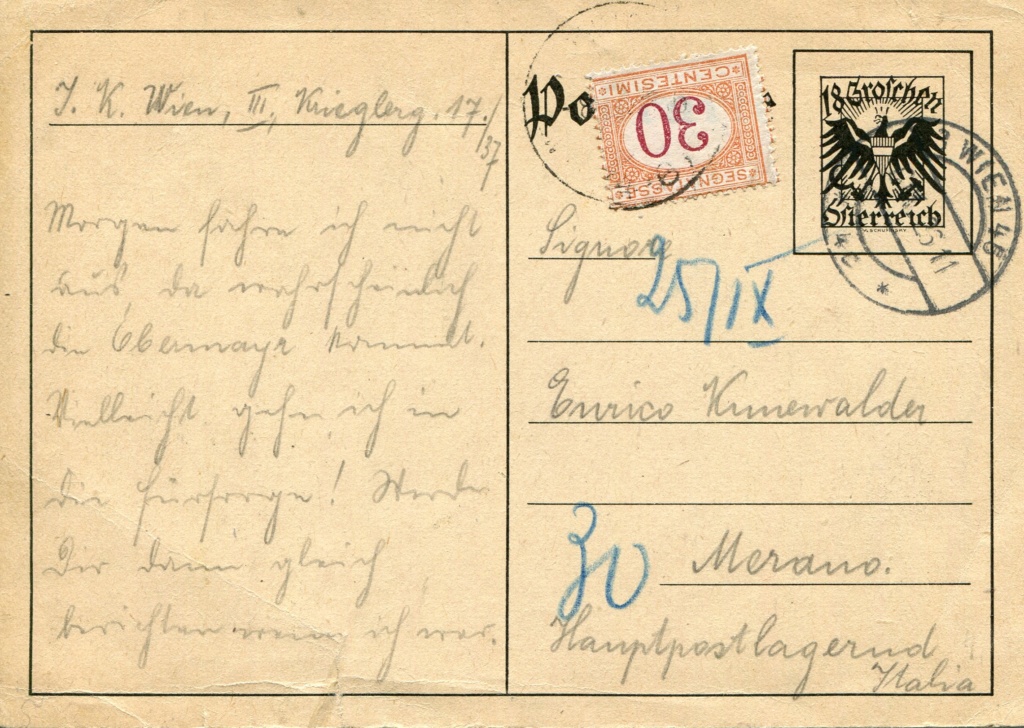 J. K. Wien, III, Krieglerg. 17./
37
Morgen fahre ich nicht
aus, da wahrscheinlich
die Obermayr kommt.
Vielleicht gehe ich in
die Fürsorge! Werde
Dir dann gleich
berichten wenn ich war.
Po
CENTESIMI
30
SEGNATASSE
18 Groschen
Österreich
WIEN 45
Signore
25/IX
Enrico Kunewalder
30
Merano.
Hauptpostlagernd
Italia